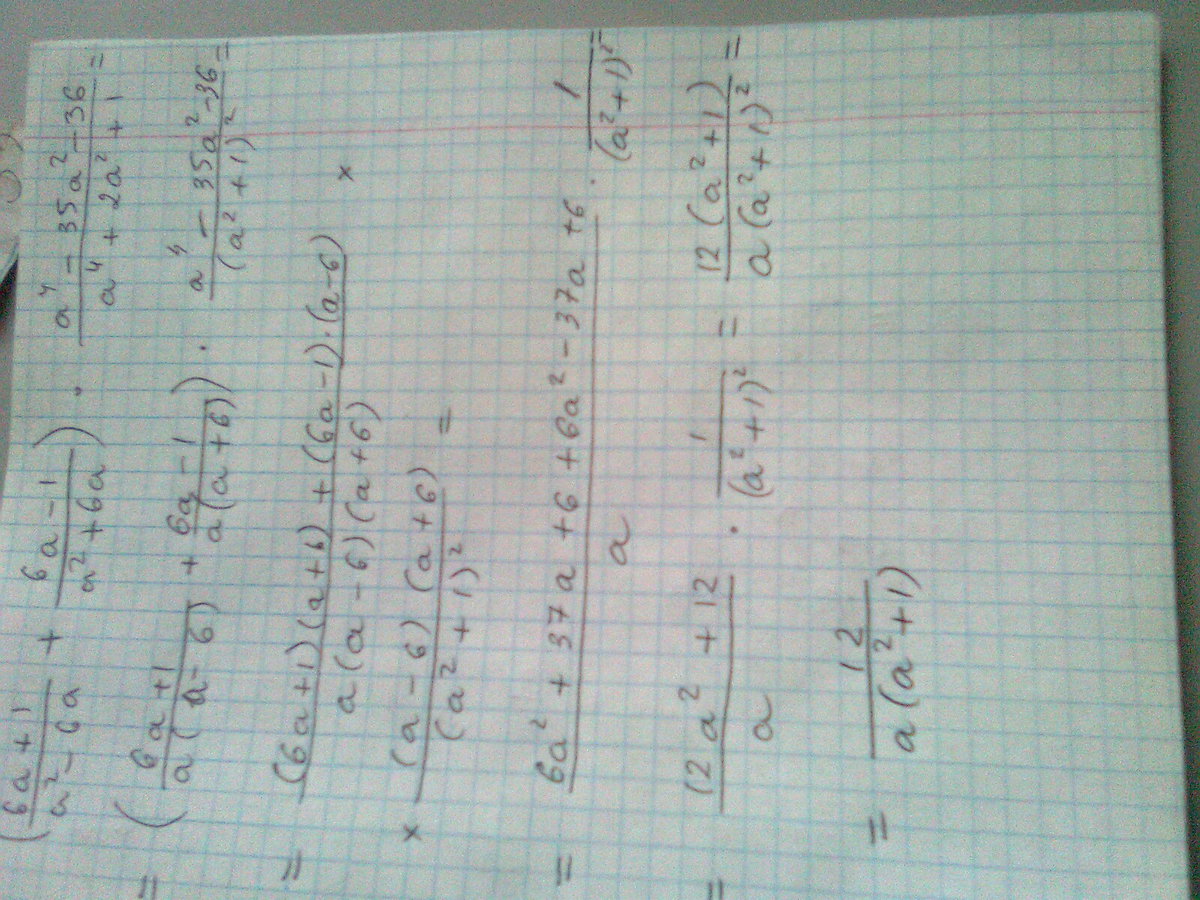 (6a+1)/(a²-6a) + (6a-1)/(a²+6a)) · (a⁴-35a²-36)/(a⁴+2a²+1) =
= ((6a+1)/(a(a-6)) + (6a-1)/(a(a+6))) · (a⁴-35a²-36)/(a²+1)² =
= ((6a+1)(a+6)+(6a-1)·(a-6))/(a(a-6)(a+6)) ×
× ((a-6)(a+6))/(a²+1)² =
= (6a²+37a+6+6a²-37a+6)/a · 1/(a²+1)² =
= (12a²+12)/a · 1/(a²+1)² = 12(a²+1)/(a(a²+1)²) =
= 12/(a(a²+1))